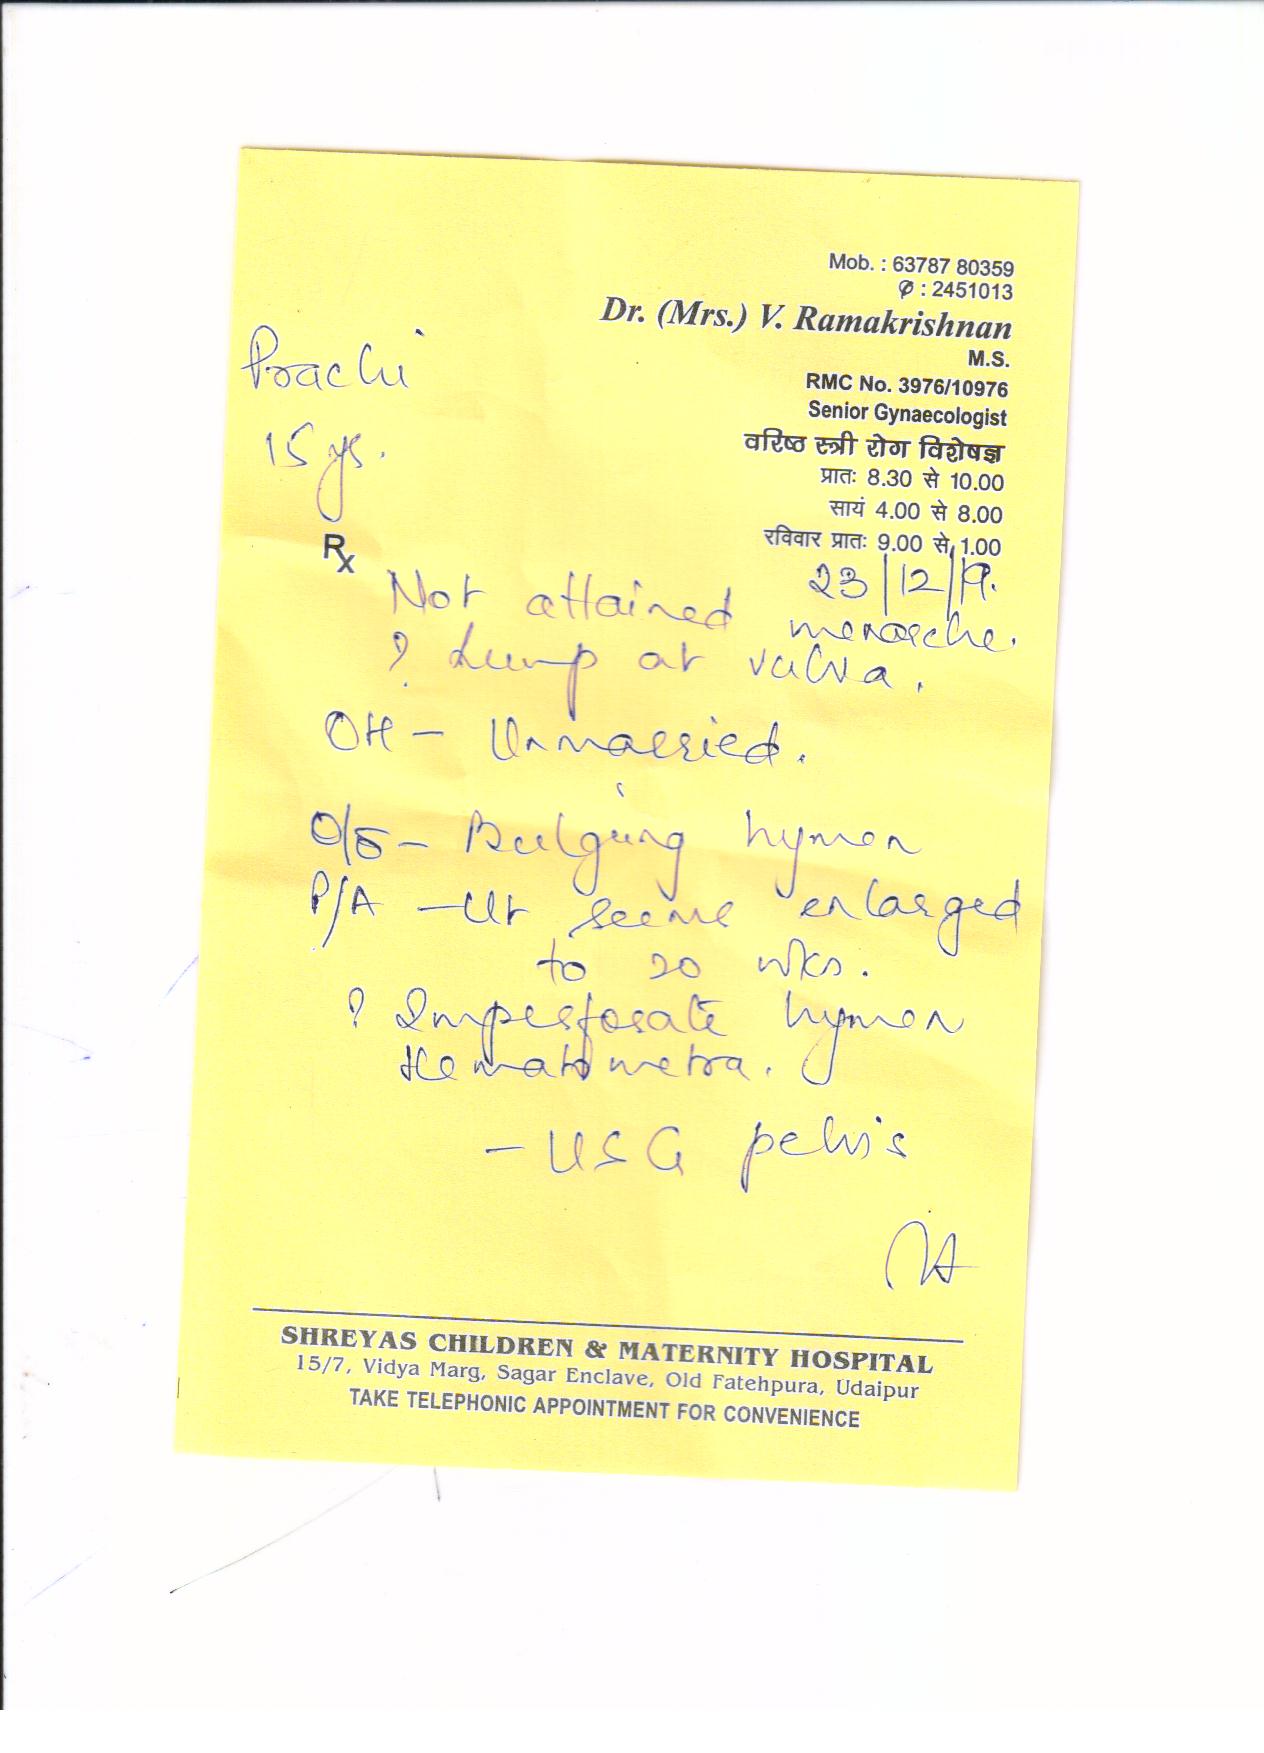 Mob. : 63787 80359
✆ : 2451013
Dr. (Mrs.) V. Ramakrishnan
M.S.
RMC No. 3976/10976
Senior Gynaecologist
वरिष्ठ स्त्री रोग विशेषज्ञ
प्रातः 8.30 से 10.00
सायं 4.00 से 8.00
रविवार प्रातः 9.00 से 1.00
Prachi
15 ys.
Rx
23/12/19.
Not attained menarche.
? Lump at vulva.
OH - Unmarried.
O/E - Bulging hymen
P/A - Ut seems enlarged
to 20 wks.
? Imperforate hymen
Hematometra.
- USG pelvis
SHREYAS CHILDREN & MATERNITY HOSPITAL
15/7, Vidya Marg, Sagar Enclave, Old Fatehpura, Udaipur
TAKE TELEPHONIC APPOINTMENT FOR CONVENIENCE